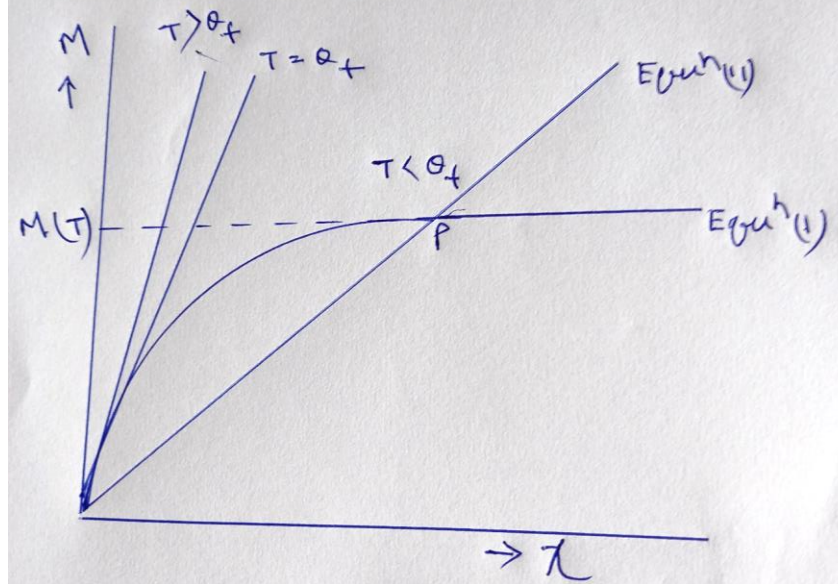 M
↑
T > θf
T = θf
Equⁿ(11)
T < θf
M(T)
P
Equⁿ(1)
→ x